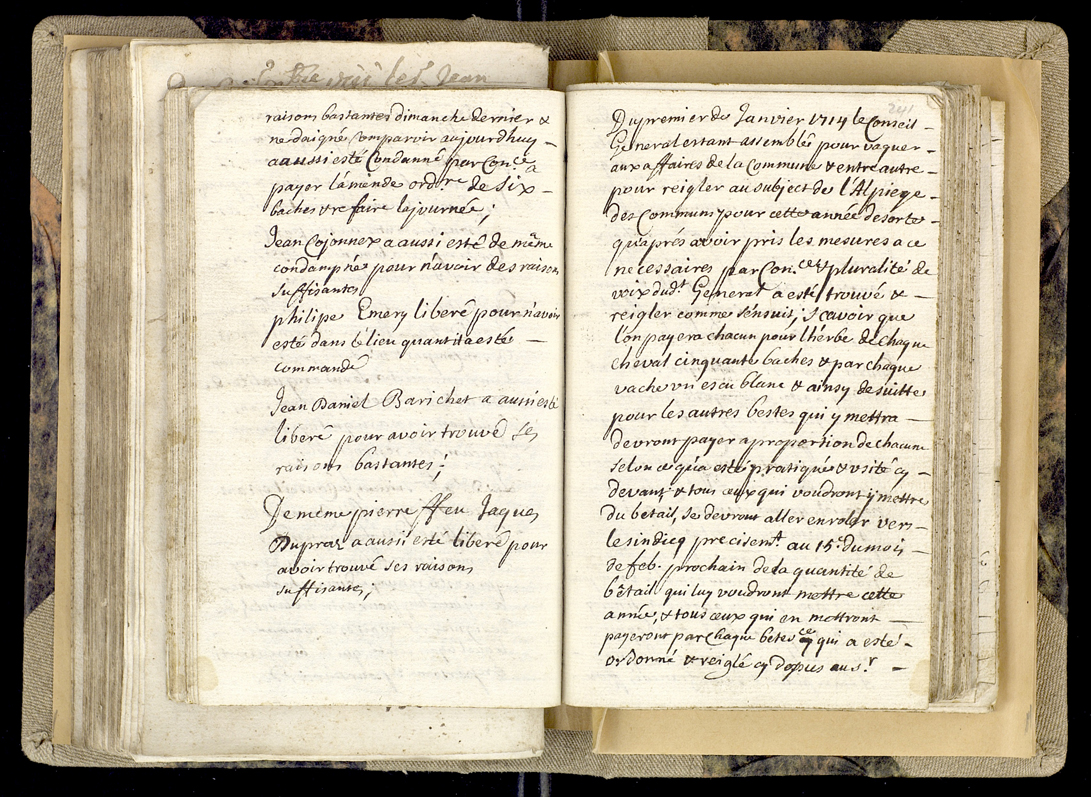 raisons bastantes dimanche dernier &
ne daigné Comparoir aujourdhuy –
a aussi esté Condanné par Con.ce a
payer lámende ord.re de six –
baches & refaire la journée ;
Jean Cojonnex a aussi esté de même
condampné pour n'avoir des raisons
suffisantes
philipe Emery liberé pour n'avoir
esté dans le lieu quant il a esté –
commandé
Jean Daniel Barichet a aussi esté
liberé pour avoir trouvé ses
raisons bastantes ;
De même pierre ffeu Jaques
Dupraz a aussi esté liberé pour
avoir trouvé ses raisons
suffisantes ;
241
Du premier de Janvier 1714 le Conseil –
General estant assemblé pour vaquer –
aux affaires de la Commune & entre autre –
pour reigler au subject de l'Alpiege –
des Communs pour cette année de sorte –
qu'aprés avoir pris les mesures a ce
necessaires par Con.ce & pluralité de
voix dud.t General a esté trouvé & –
reigler comme s'ensuit, Scavoir que
l'on payera chacun pour l'herbe de chaque
cheval cinquante baches & par chaque
vache un escu blanc & ainsy de suitte
pour les autres bestes qui y mettra –
devront payer a proportion de chacune
selon ce qu'a esté pratiqué & usité cy –
devant & tous ceux qui voudront y mettre
du betail, se devront aller enroler vers –
le sindicq precisem.t au 15.e du mois –
de feb. prochain de la quantité de
bêtail qui luy voudront mettre cette
année, & tous ceux qui en mettront –
payeront par chaque bete ce qui a esté –
ordonné & reiglé cy dessus au s.r –